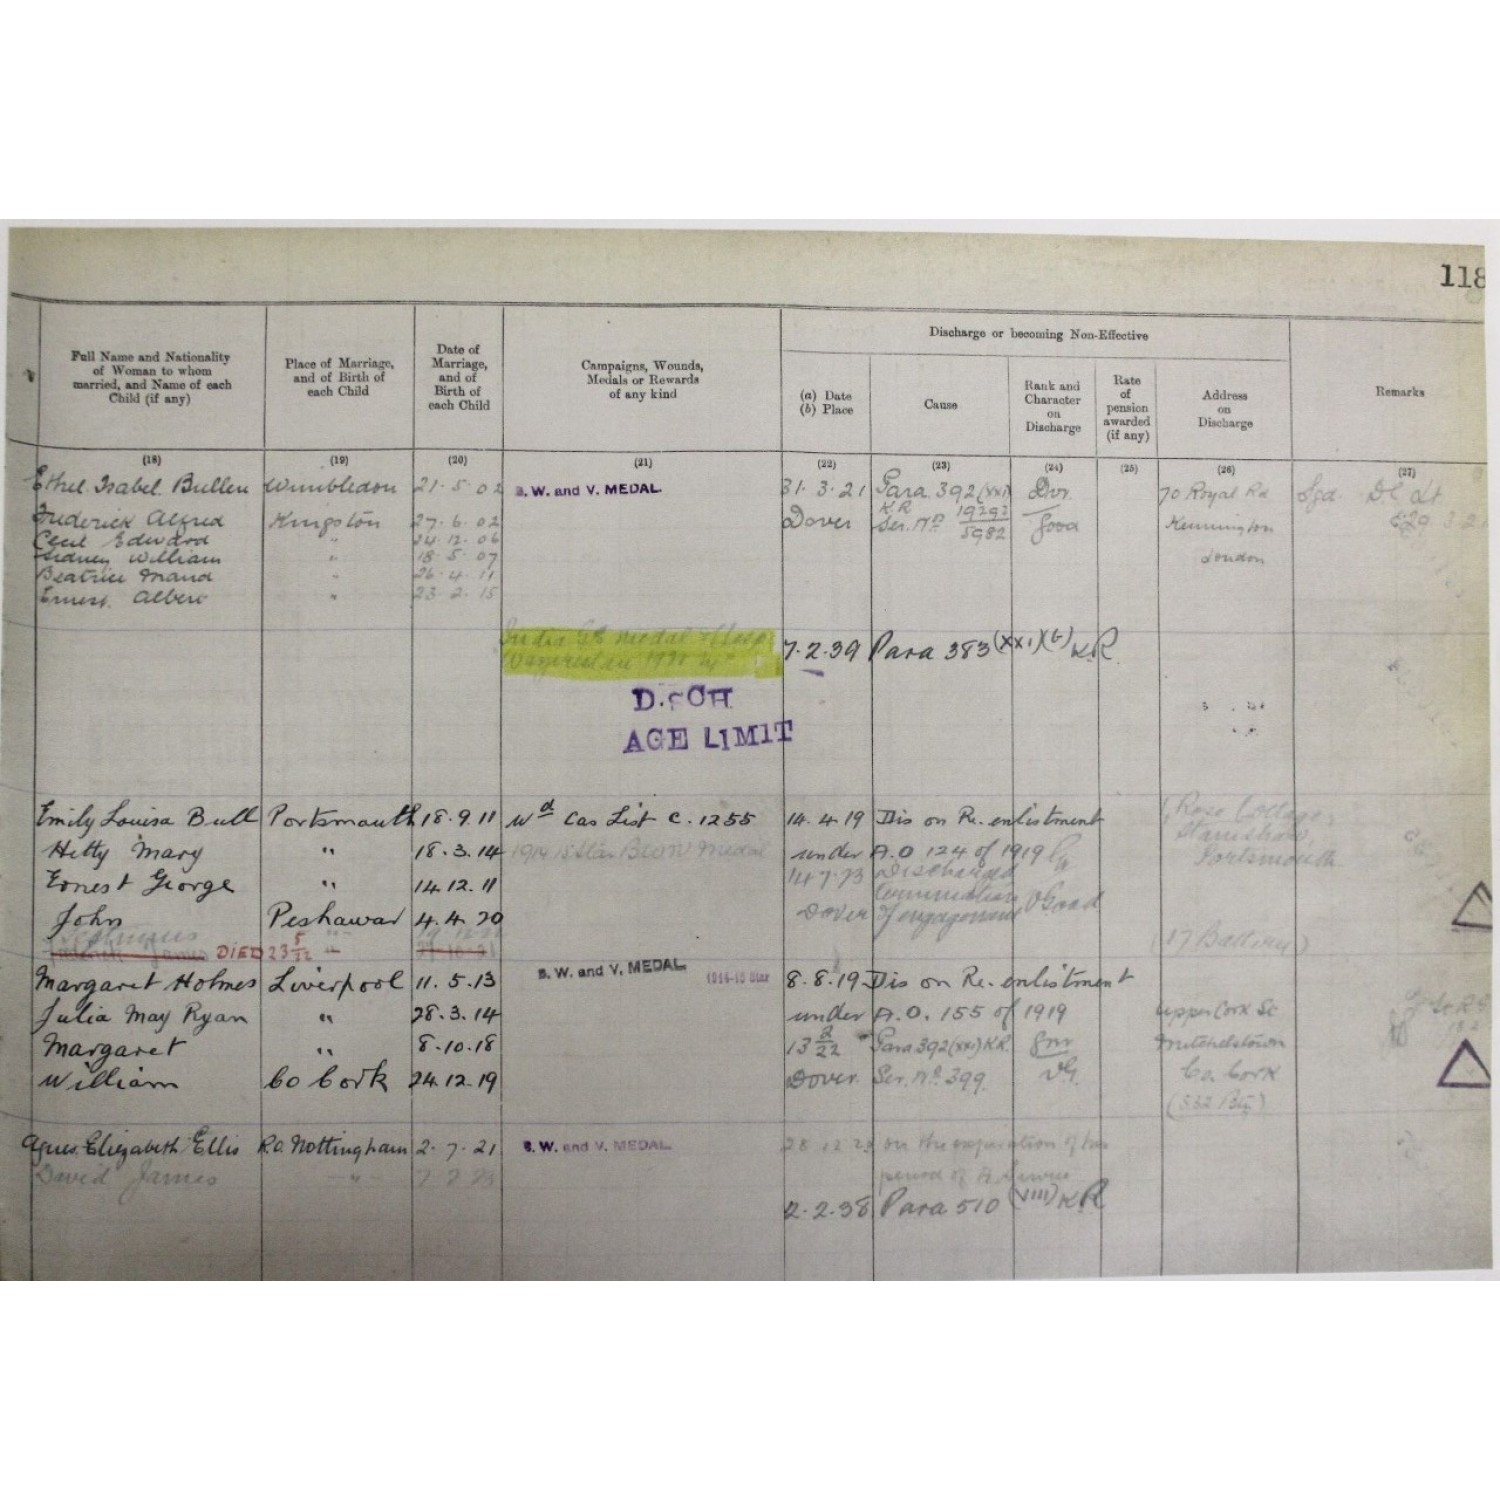 118
Full Name and Nationality
of Woman to whom
married, and Name of each
Child (if any)
Place of Marriage,
and of Birth of
each Child
Date of
Marriage,
and of
Birth of
each Child
Campaigns, Wounds,
Medals or Rewards
of any kind
Discharge or becoming Non-Effective
(a) Date
(b) Place
Cause
Rank and
Character
on
Discharge
Rate
of
pension
awarded
(if any)
Address
on
Discharge
Remarks
(18) (19) (20) (21) (22) (23) (24) (25) (26) (27)
Ethel Isabel Bullen Wimbledon 21.5.02 B. W. and V. MEDAL. 31.3.21 Para. 392 (XXI) Dvr. 70 Royal Rd Sgd.
Frederick Alfred Kingston 27.6.02 Dover K.R. Ser. No 5982 Good Kennington
Cecil Edward " 24.12.06 London
Sidney William " 18.5.07
Beatrice Maud " 26.4.11
Ernest Albert " 23.2.15
India medal 7.2.39 Para 383 (XXI)(b) K.R.
DISCH
AGE LIMIT
Emily Louisa Bull Portsmouth 18.9.11 Wd Cas List C. 1255 14.4.19 Dis on Re.enlistment Rose Cottage,
Hetty Mary " 18.3.14 1914 15 Star BWV Medal under A.O 124 of 1919 Stamshaw,
Ernest George " 14.12.11 Discharged Portsmouth
John Peshawar 4.4.20 Dover Termination of engagement V Good
James DIED 23 5/22 " (17 Battery)
Margaret Holmes Liverpool 11.5.13 B. W. and V. MEDAL. 1914-15 Star 8.8.19 Dis on Re.enlistment
Julia May Ryan " 28.3.14 under A.O. 155 of 1919 Upper Cork St
Margaret " 8.10.18 13 2/22 Para 392 (XXI) K.R. Gnr Mitchelstown
William Co Cork 24.12.19 Dover. Ser. No 399. VG. Co. Cork
Agnes Elizabeth Ellis R.O. Nottingham 2.7.21 B. W. and V. MEDAL. on the expiration of his
David James " period of A Service
2.2.38 Para 510 (VIII) K.R